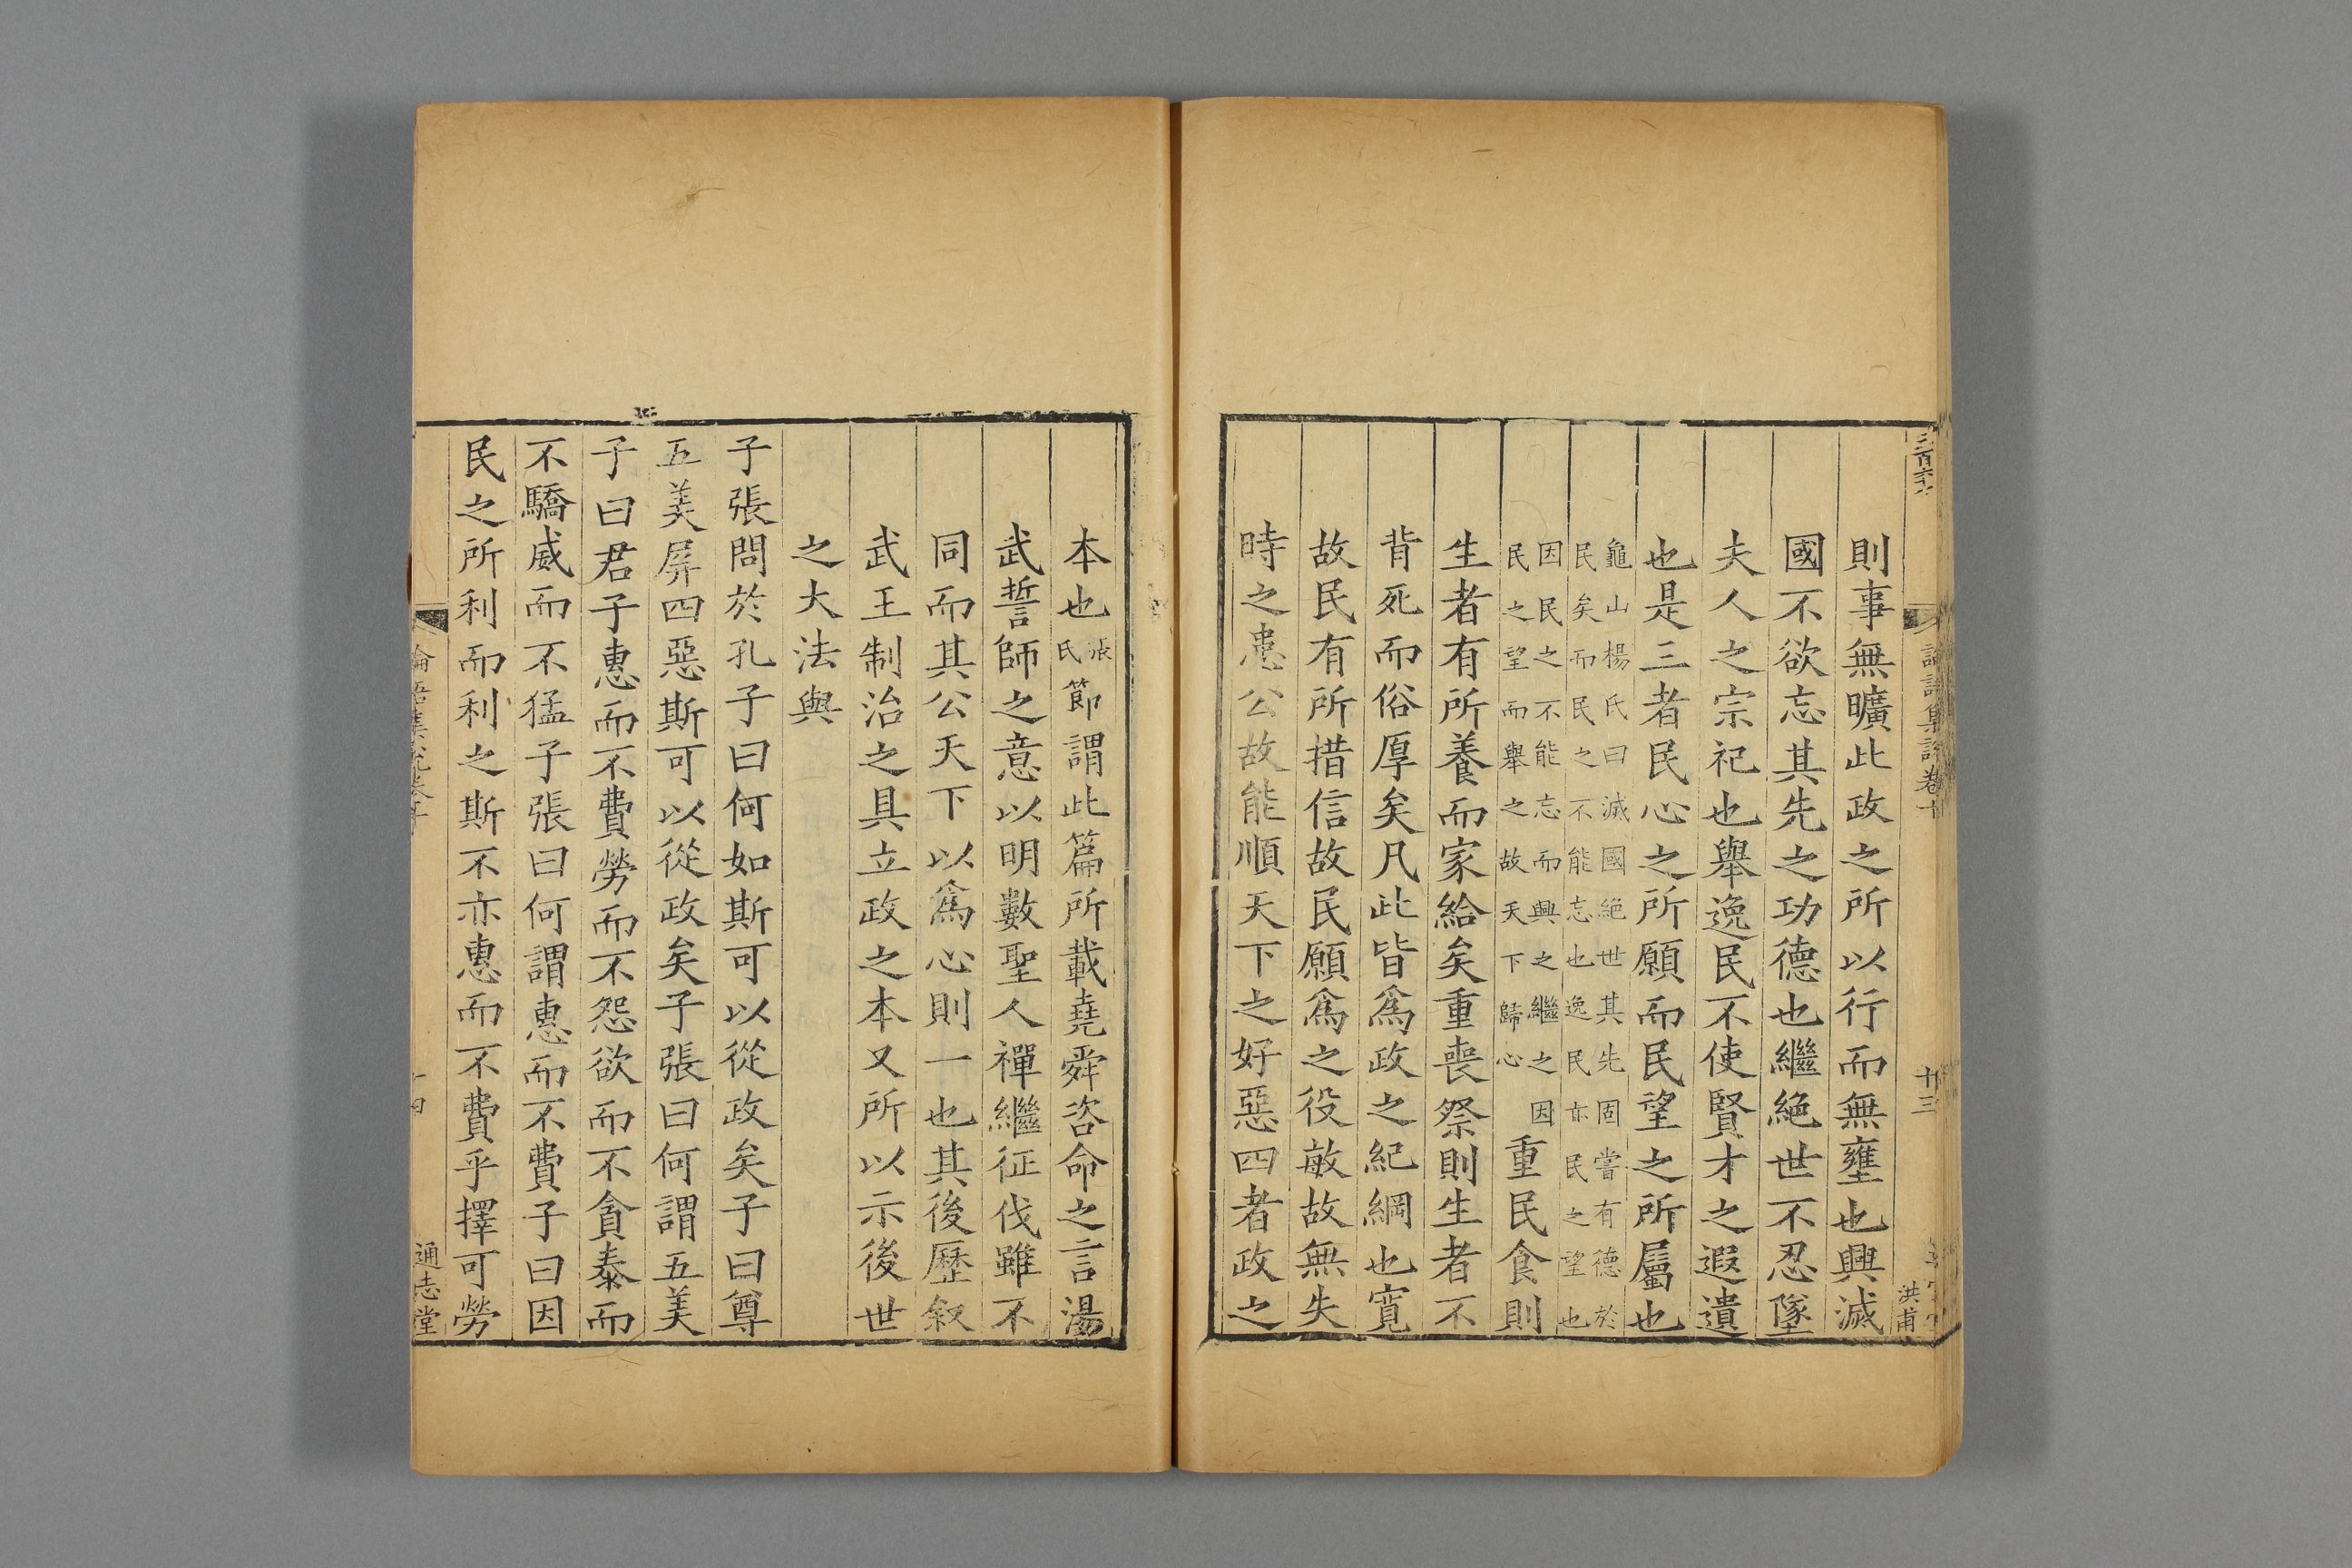 則事無曠此政之所以行而無壅也興滅
國不欲忘其先之功德也繼絶世不忍墜
夫人之宗祀也舉逸民不使賢才之遐遺
也是三者民心之所願而民望之所屬也
龜山楊氏曰滅國絶世其先固嘗有德於
民矣而民之不能忘也逸民亦民之望也
因民之不能忘而興之繼之因
民之望而舉之故天下歸心
重民食則
生者有所養而家給矣重喪祭則生者不
背死而俗厚矣凡此皆爲政之紀綱也寬
故民有所措信故民願爲之役敏故無失
時之患公故能順天下之好惡四者政之
論語集說卷十
十三
洪甫
本也張氏節謂此篇所載堯舜咨命之言湯
武誓師之意以明數聖人禪繼征伐雖不
同而其公天下以爲心則一也其後歷叙
武王制治之具立政之本又所以示後世
之大法與
子張問於孔子曰何如斯可以從政矣子曰尊
五美屏四惡斯可以從政矣子張曰何謂五美
子曰君子惠而不費勞而不怨欲而不貪泰而
不驕威而不猛子張曰何謂惠而不費子曰因
民之所利而利之斯不亦惠而不費乎擇可勞
論語集說卷十
通志堂